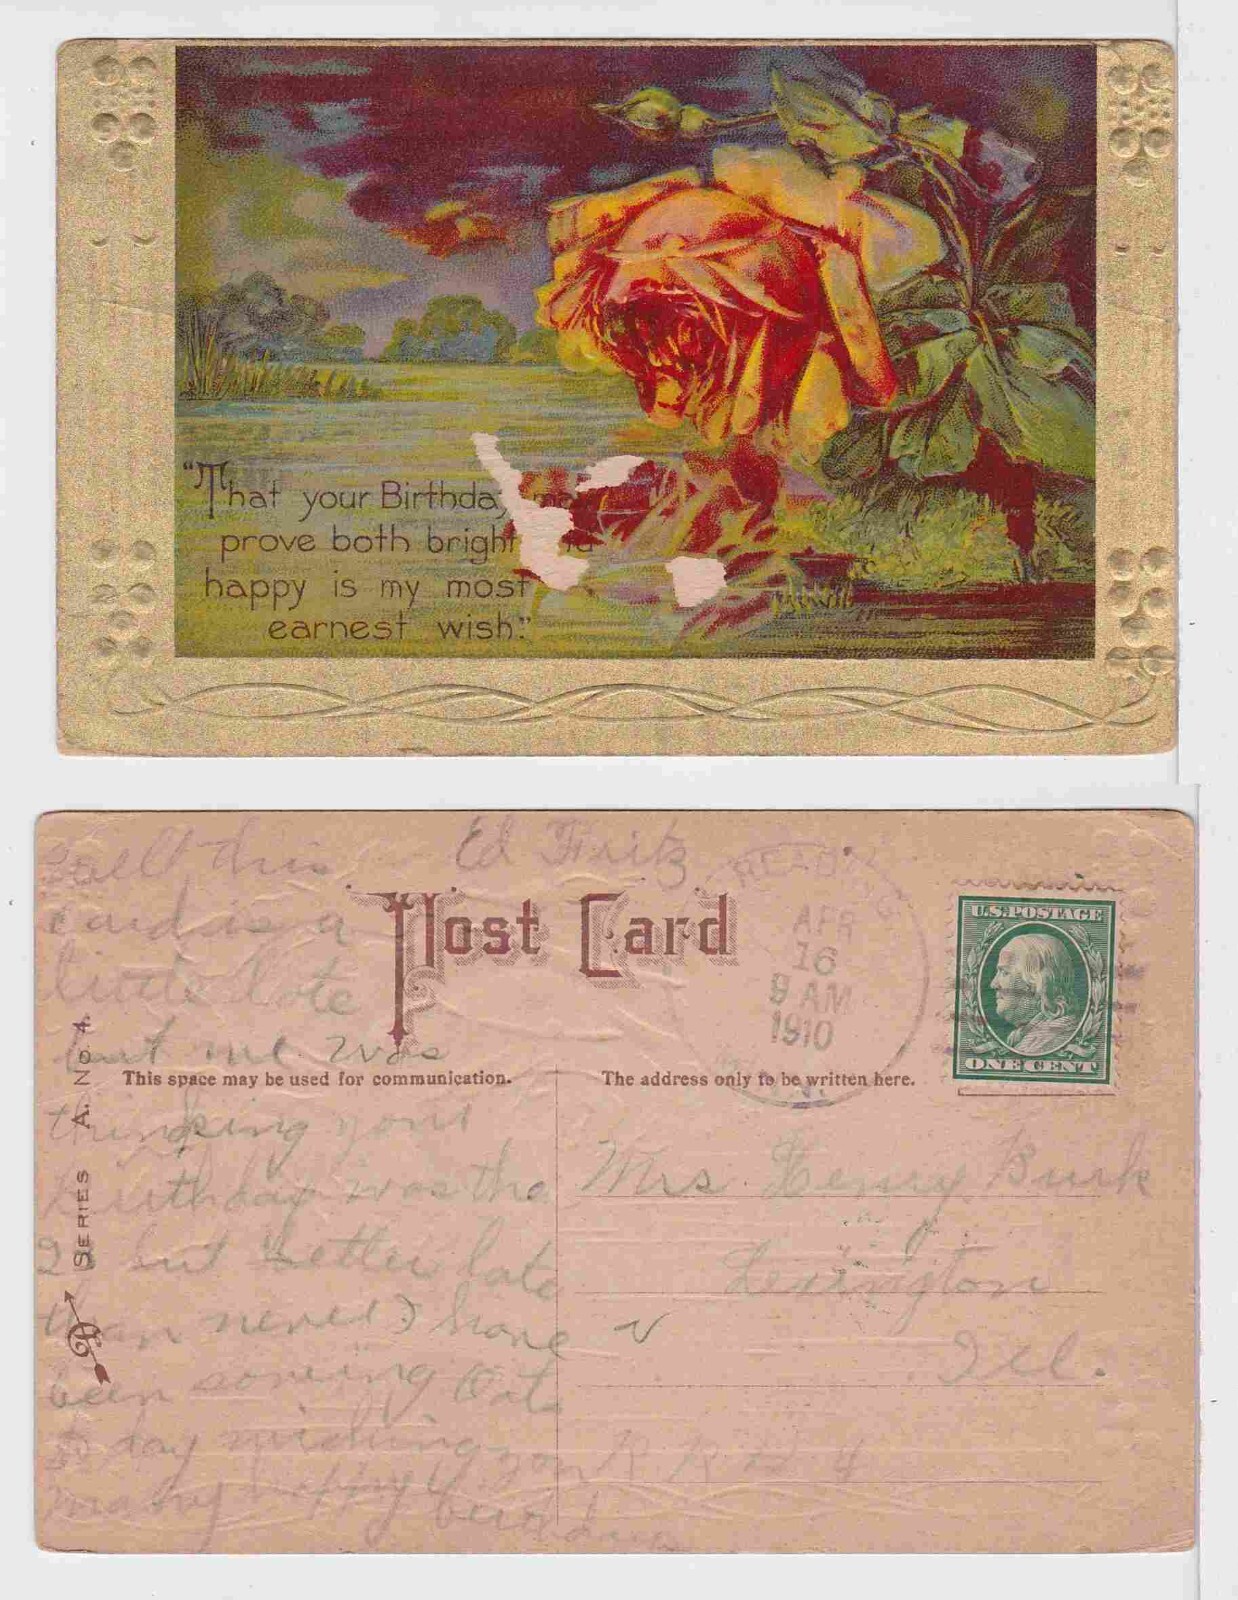 "That your Birthday may
prove both bright
happy is my most
earnest wish."
Well this
card is a
little late
but me was
thinking your
birthday was the
2 but better late
than never I have
been sowing Oats
to day wishing you
many happy
Ed Fritz
Post Card
READING
APR
16
9 AM
1910
U.S. POSTAGE
ONE CENT
This space may be used for communication.
The address only to be written here.
Mrs. Henry Burk
Lexington
Ill.
R R No 4
SERIES A. NO. 4.